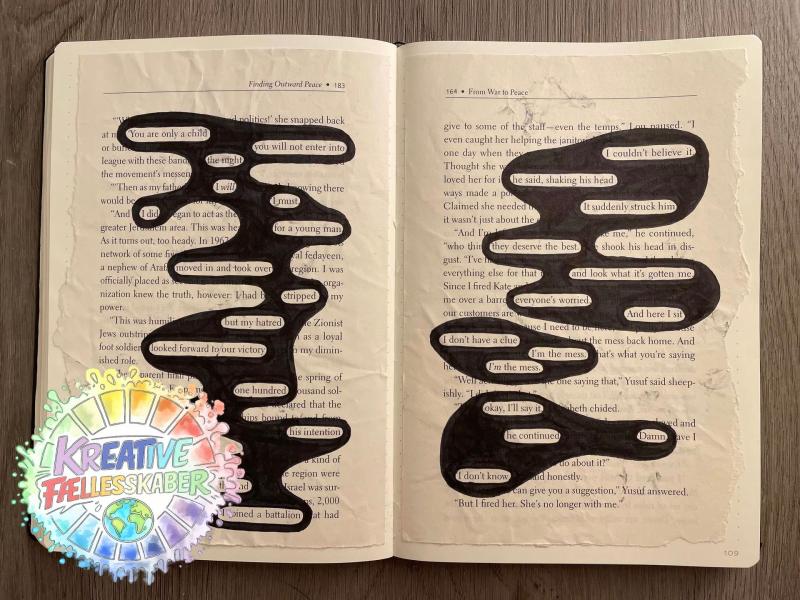 Finding Outward Peace • 183
politics!' she snapped back
at
You are only a child
or
you will not enter into
league with these band the night
the movement's messen
"Then as my fath I will knowing there
would be I must
"And I did began to act as the for a young man
greater area. This was he
As it turns out, too heady. In fedayeen,
network of some
a nephew of Araf moved in and took over region. I was
officially placed as
nization knew the truth, however: I had stripped my
power.
"This was humili but my hatred Zionist
Jews outstrip as a loyal
foot soldie looked forward to your victory my dimin-
ished role.
parent spring of
one hundred thousand sol-
declared that the
bound
his intention
kind of
region were
and Israel was sur-
2,000
joined a battalion that had
KREATIVE
FÆLLESSKABER
164 • From War to Peace
give to some of the staff—even the temps." Lou paused. "I
even caught her helping the janitor
one day when they I couldn't believe it
Thought she
loved her for he said, shaking his head
ways made a
Claimed she needed It suddenly struck him
it wasn't just about the
"And I'm me," he continued,
"who they deserve the best. shook his head in dis-
gust. "I've
everything else for that and look what it's gotten me
Since I fired Kate
me over a barre everyone's worried
our customers are And here I sit
cause I need to be
I don't have a clue the mess back home. And
I'm the mess. that's what you're saying
I'm the mess.
"Well one saying that," Yusuf said sheep-
ishly.
okay, I'll say it. chided.
and
he continued Damn. ave I
do about it?"
I don't know and honestly.
can give you a suggestion," Yusuf answered.
"But I fired her. She's no longer with me."
109